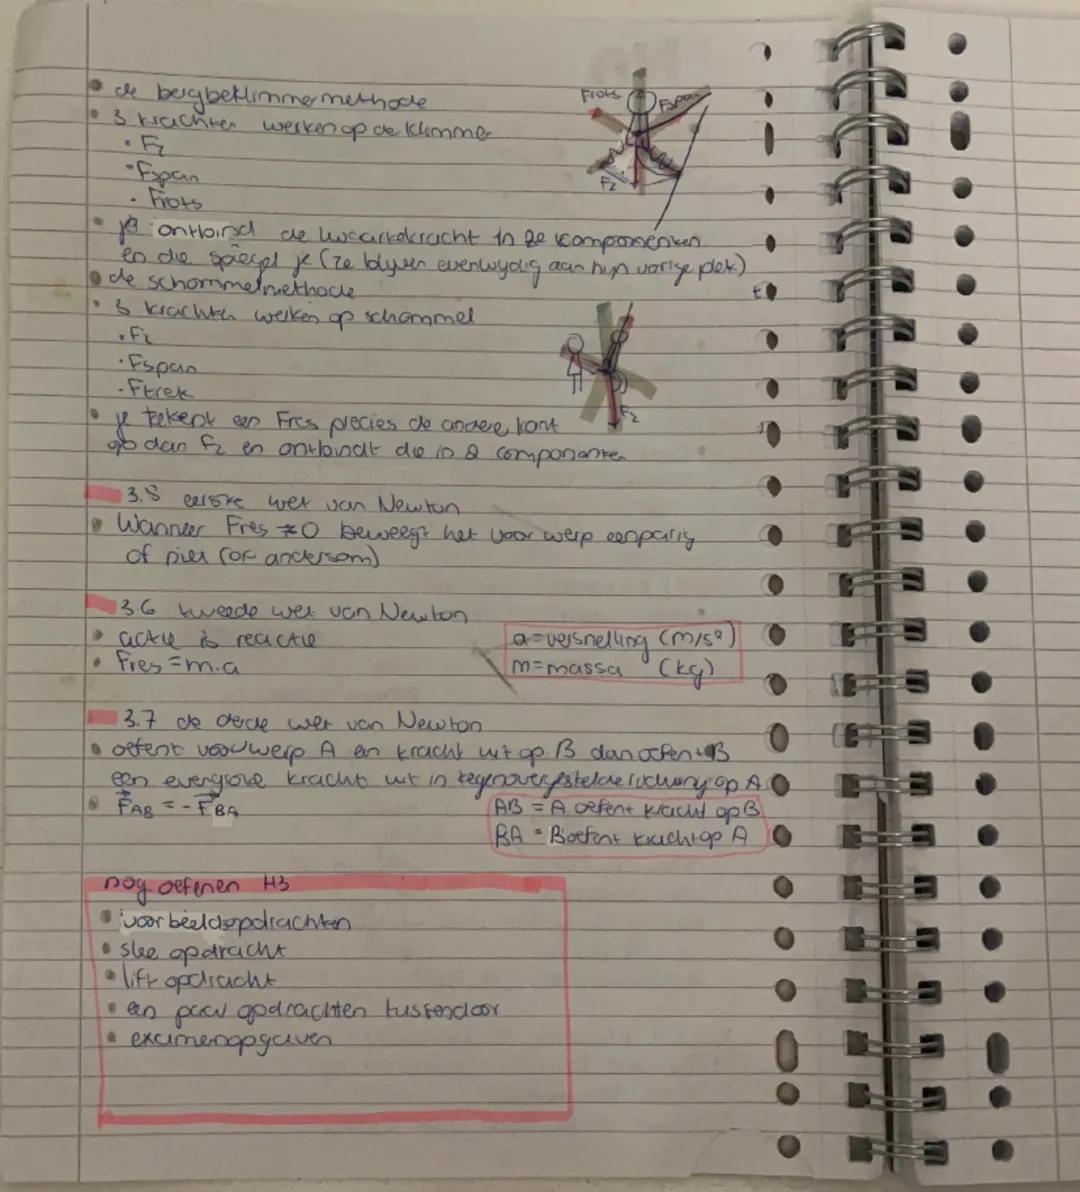 de bergbeklimmermethode
3 krachten werken op de klimmer
Fz
Fspan
Frots
Frots
Fspan
Fz
je ontbind de zwaartekracht in 2e componenten
en die spiegel je (ze blijven evenwijdig aan hun vorige plek)
de schommelmethode
3 krachten werken op schommel
Fz
Fspan
Ftrek
Fz
je tekent een Fres precies de andere kant
op dan Fz en ontbindt die in 2 componenten
3.5 eerste wet van Newton
Wanneer Fres ≠ 0 beweegt het voorwerp eenparig
of niet (of andersom)
3.6 tweede wet van Newton
actie is reactie
Fres = m.a
a = versnelling (m/s²)
m = massa (kg)
3.7 de derde wet van Newton
oefent voorwerp A een kracht uit op B dan oefent B
een evengrote kracht uit in tegenovergestelde richting op A
FAB = -FBA
AB = A oefent kracht op B
BA = B oefent kracht op A
nog oefenen H3
voorbeeldopdrachten
slee opdracht
lift opdracht
een paar opdrachten tussendoor
examenopgaven